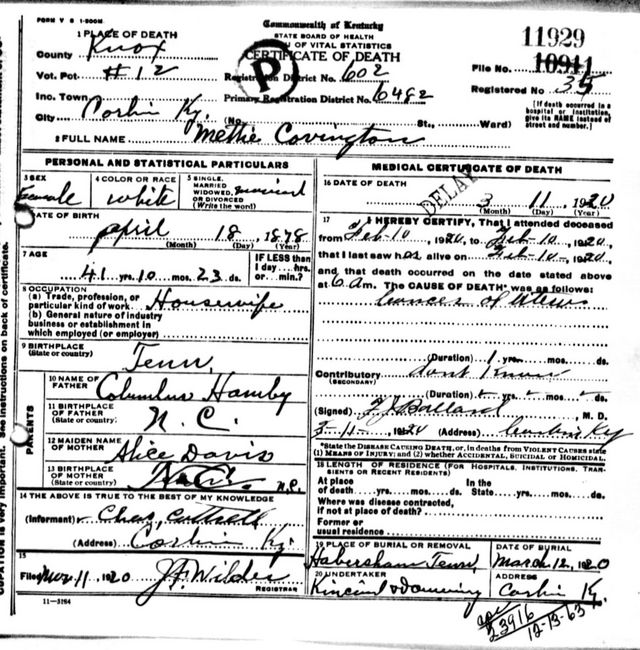 FORM V S 1-500M.
Commonwealth of Kentucky
STATE BOARD OF HEALTH
OF VITAL STATISTICS
CERTIFICATE OF DEATH
P
11929
File No. 10911
Registered No 35
[If death occurred in a hospital or institution, give its NAME instead of street and number.]
1 PLACE OF DEATH
County Knox
Vot. Pct #12
Registration District No. 602
Inc. Town
Primary Registration District No. 6482
City Corbin Ky. (No. St., Ward)
2 FULL NAME Mettie Covington
PERSONAL AND STATISTICAL PARTICULARS
3 SEX Female
4 COLOR OR RACE White
5 SINGLE, MARRIED WIDOWED, OR DIVORCED (Write the word) married
DATE OF BIRTH
April 18, 1878
(Month) (Day) (Year)
7 AGE
41 yrs. 10 mos. 23 ds.
IF LESS than 1 day....hrs. or....min.?
8 OCCUPATION
(a) Trade, profession, or particular kind of work Housewife
(b) General nature of industry business or establishment in which employed (or employer)
9 BIRTHPLACE
(State or country) Tenn
PARENTS
10 NAME OF FATHER Columbus Hamby
11 BIRTHPLACE OF FATHER (State or country) N. C.
12 MAIDEN NAME OF MOTHER Alice Davis
13 BIRTHPLACE OF MOTHER (State or country) N.C.
14 THE ABOVE IS TRUE TO THE BEST OF MY KNOWLEDGE
(Informant) Chas, Cottrell
(Address) Corbin Ky.
15
Filed Mar 11, 1920 J.F. Wilder
REGISTRAR
11-3184
MEDICAL CERTIFICATE OF DEATH
16 DATE OF DEATH
DELAY
3 11, 1920
(Month) (Day) (Year)
17 I HEREBY CERTIFY, That I attended deceased
from Feb-10, 1920, to Feb-10, 1920,
that I last saw h alive on Feb-10, 1920,
and that death occurred on the date stated above
at 6 am. The CAUSE OF DEATH* was as follows:
Cancer of Uterus
(Duration) 1 yrs. mos. ds.
Contributory dont know
(SECONDARY)
(Duration) yrs. mos. ds.
(Signed) Ballard, M. D.
3-11-, 1920 (Address) Corbin Ky
*State the DISEASE CAUSING DEATH, or, in deaths from VIOLENT CAUSES state
(1) MEANS OF INJURY; and (2) whether ACCIDENTAL, SUICIDAL or HOMICIDAL.
18 LENGTH OF RESIDENCE (FOR HOSPITALS, INSTITUTIONS, TRANSIENTS OR RECENT RESIDENTS)
At place of death....yrs....mos....ds. In the State....yrs....mos....ds.
Where was disease contracted, if not at place of death?
Former or usual residence
19 PLACE OF BURIAL OR REMOVAL
Habersham Tenn,
DATE OF BURIAL
March 12, 1920
20 UNDERTAKER
Kincaid
ADDRESS
Corbin Ky.
23916
12-13-63
See instructions on back of certificate.
CUPATION is very important.